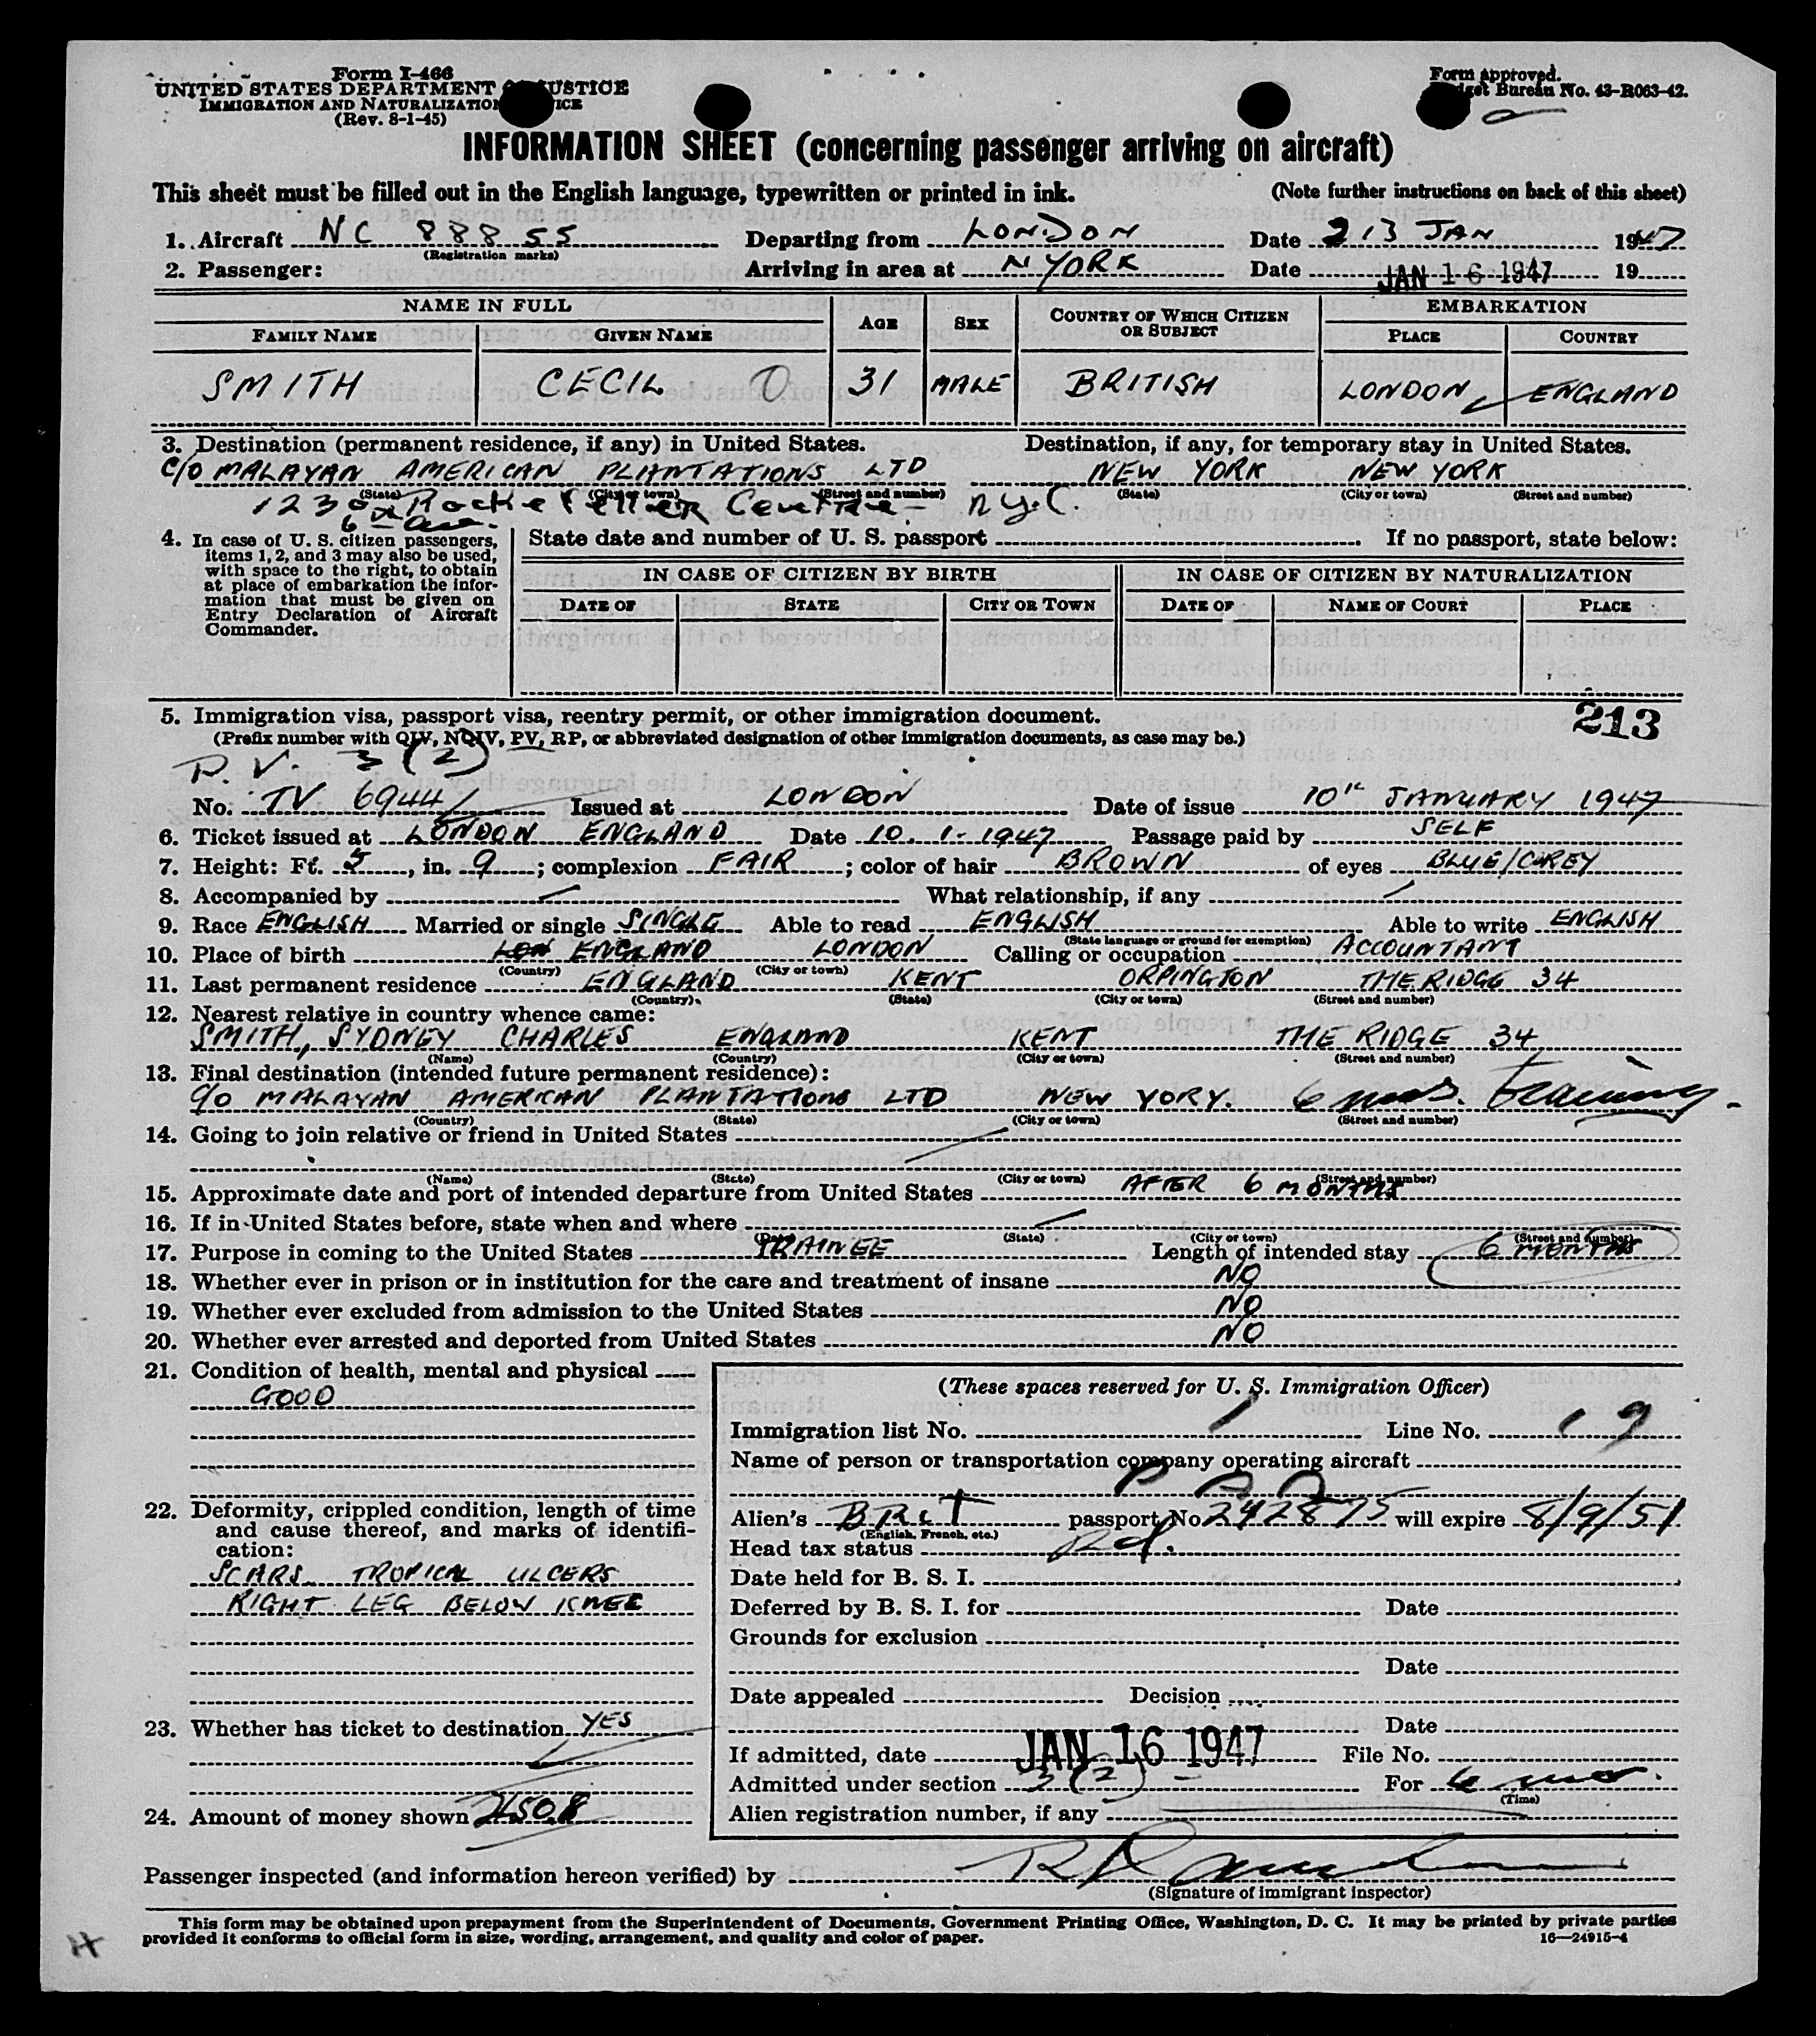 Form I-466
UNITED STATES DEPARTMENT OF JUSTICE
IMMIGRATION AND NATURALIZATION SERVICE
(Rev. 8-1-45)
Form approved.
Budget Bureau No. 43-R063-42.
INFORMATION SHEET (concerning passenger arriving on aircraft)
This sheet must be filled out in the English language, typewritten or printed in ink. (Note further instructions on back of this sheet)
1. Aircraft NC 88855 Departing from LONDON Date 13 JAN 1947
(Registration marks)
2. Passenger: Arriving in area at N YORK Date JAN 16 1947 19
NAME IN FULL AGE SEX COUNTRY OF WHICH CITIZEN OR SUBJECT EMBARKATION
FAMILY NAME GIVEN NAME PLACE COUNTRY
SMITH CECIL 31 MALE BRITISH LONDON ENGLAND
3. Destination (permanent residence, if any) in United States. Destination, if any, for temporary stay in United States.
C/O MALAYAN AMERICAN PLANTATIONS LTD NEW YORK NEW YORK
(State) (City or town) (Street and number) (State) (City or town) (Street and number)
1230 Rockefeller Centre - N.Y.C.
6th Ave.
4. In case of U. S. citizen passengers, items 1, 2, and 3 may also be used, with space to the right, to obtain at place of embarkation the information that must be given on Entry Declaration of Aircraft Commander.
State date and number of U. S. passport If no passport, state below:
IN CASE OF CITIZEN BY BIRTH IN CASE OF CITIZEN BY NATURALIZATION
DATE OF STATE CITY OR TOWN DATE OF NAME OF COURT PLACE
5. Immigration visa, passport visa, reentry permit, or other immigration document. 213
(Prefix number with QIV, NQIV, PV, RP, or abbreviated designation of other immigration documents, as case may be.)
P. V. 3 (2)
No. TV 6944 Issued at LONDON Date of issue 10th JANUARY 1947
6. Ticket issued at LONDON ENGLAND Date 10. 1. 1947 Passage paid by SELF
7. Height: Ft. 5, in. 9; complexion FAIR; color of hair BROWN of eyes BLUE/GREY
8. Accompanied by What relationship, if any
9. Race ENGLISH Married or single SINGLE Able to read ENGLISH Able to write ENGLISH
(State language or ground for exemption)
10. Place of birth LON ENGLAND LONDON Calling or occupation ACCOUNTANT
(Country) (City or town)
11. Last permanent residence ENGLAND KENT ORPINGTON THE RIDGE 34
(Country) (State) (City or town) (Street and number)
12. Nearest relative in country whence came:
SMITH, SYDNEY CHARLES ENGLAND KENT THE RIDGE 34
(Name) (Country) (City or town) (Street and number)
13. Final destination (intended future permanent residence):
C/O MALAYAN AMERICAN PLANTATIONS LTD NEW YORK. 6 mos. training.
(Country) (State) (City or town) (Street and number)
14. Going to join relative or friend in United States
(Name) (State) (City or town) (Street and number)
15. Approximate date and port of intended departure from United States AFTER 6 MONTHS
16. If in United States before, state when and where
(State) (City or town) (Street and number)
17. Purpose in coming to the United States TRAINEE Length of intended stay 6 MONTHS
18. Whether ever in prison or in institution for the care and treatment of insane NO
19. Whether ever excluded from admission to the United States NO
20. Whether ever arrested and deported from United States NO
21. Condition of health, mental and physical
GOOD
22. Deformity, crippled condition, length of time and cause thereof, and marks of identification:
SCARS TROPICAL ULCERS
RIGHT LEG BELOW KNEE
23. Whether has ticket to destination YES
24. Amount of money shown
(These spaces reserved for U. S. Immigration Officer)
Immigration list No. 1 Line No. 19
Name of person or transportation company operating aircraft
P A A
Alien's BRIT passport No. 242875 will expire 8/9/51
(English, French, etc.)
Head tax status Pd.
Date held for B. S. I.
Deferred by B. S. I. for Date
Grounds for exclusion
Date
Date appealed Decision
Date
If admitted, date JAN 16 1947 File No.
Admitted under section 3 (2) For 6 mos.
(Time)
Alien registration number, if any
Passenger inspected (and information hereon verified) by
(Signature of immigrant inspector)
This form may be obtained upon prepayment from the Superintendent of Documents, Government Printing Office, Washington, D. C. It may be printed by private parties
provided it conforms to official form in size, wording, arrangement, and quality and color of paper.
16—24915-4